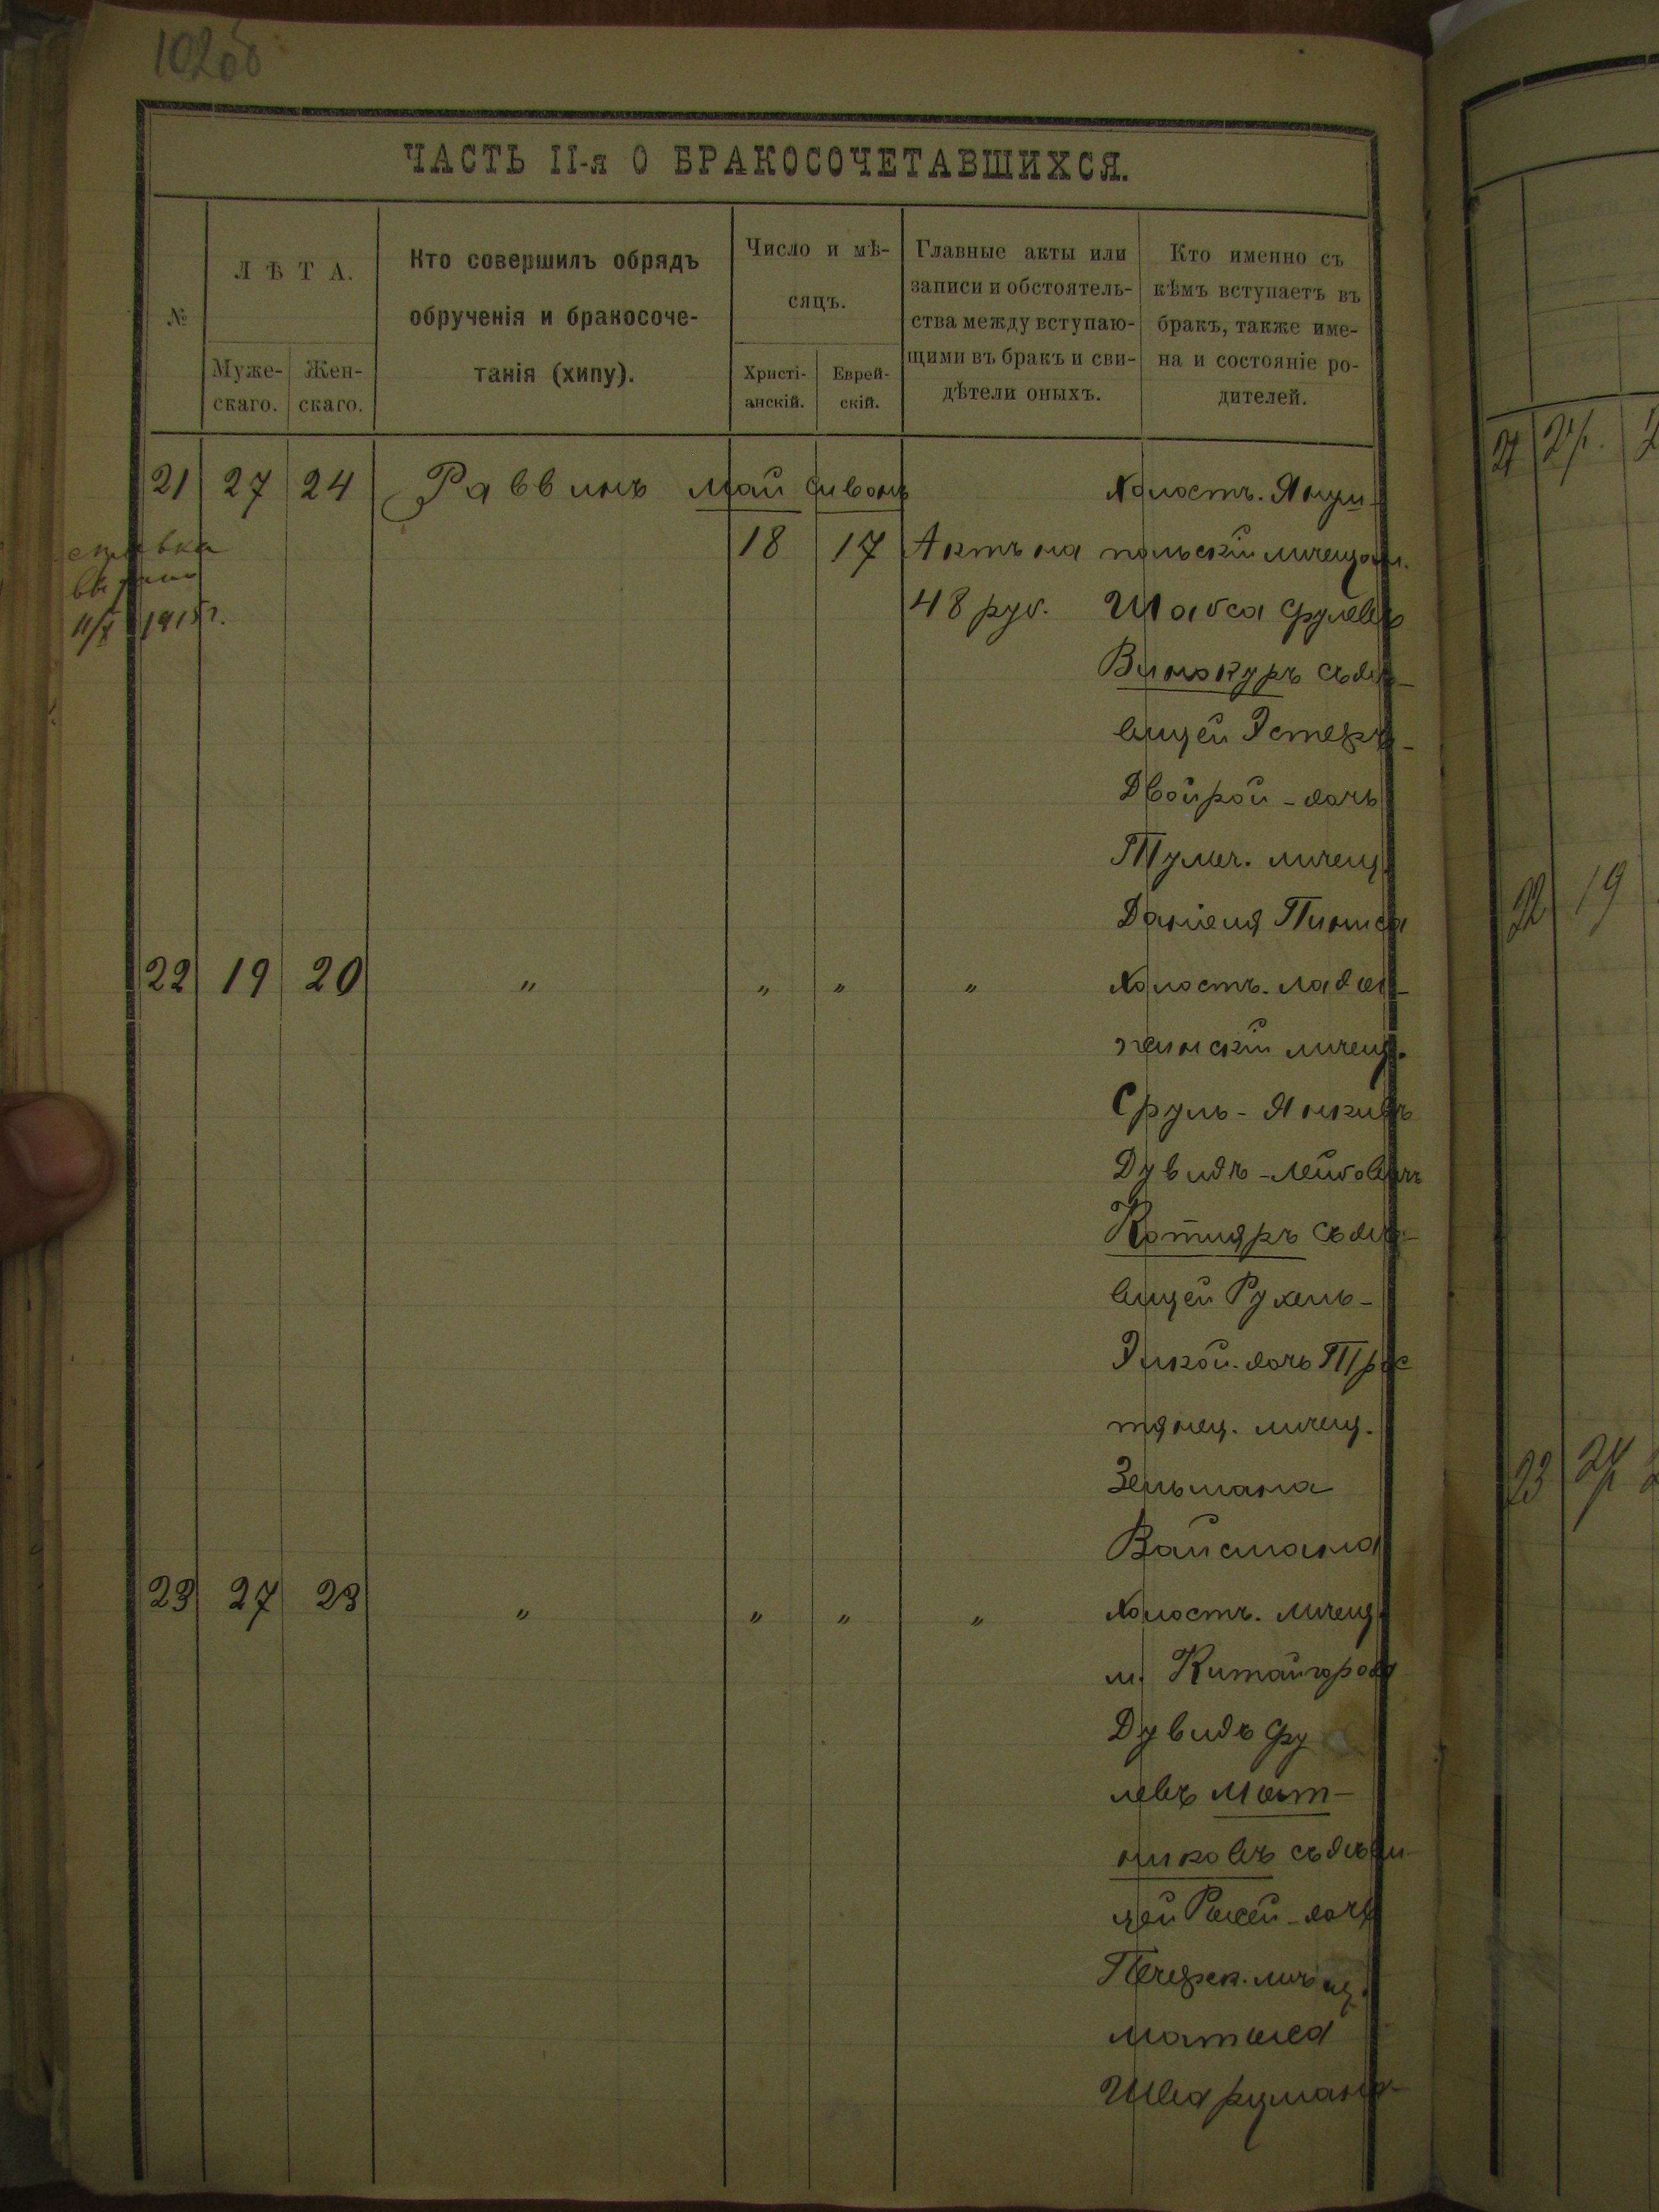 102об
ЧАСТЬ II-я О БРАКОСОЧЕТАВШИХСЯ.
№
ЛѢТА.
Муже-
скаго.
Жен-
скаго.
Кто совершилъ обрядъ
обрученія и бракосоче-
танія (хипу).
Число и мѣ-
сяцъ.
Христі-
анскій.
Еврей-
скій.
Главные акты или
записи и обстоятель-
ства между вступаю-
щими въ бракъ и сви-
дѣтели оныхъ.
Кто именно съ
кѣмъ вступаетъ въ
бракъ, также име-
на и состояніе ро-
дителей.
21 27 24 Раввинъ май сивонъ Холостъ. Януш-
справка
выдана
11/X 1915 г.
18 17 Актъ на польскій мѣщан.
48 руб. Шабса Срулевъ
Винокуръ съ дѣ-
вицей Эстеръ-
Двойрой - дочь
Тульч. мѣщ.
Даніеля Пиниса
22 19 20 " " " " Холостъ. ладыж-
жинскій мѣщ.
Сруль-Янкивъ
Дувидъ-Лейбовичъ
Котляръ съ дѣ-
вицей Рухель-
Элкой. дочь Трос
тянец. мѣщ.
Зельмана
Вайсмана
23 27 23 " " " " Холостъ. мѣщ.
м. Китайгорода
Дувидъ Сру
левъ Мет-
никовъ съ дѣви-
цей Рысей - дочь
Печерск. мѣщ.
Мотыса
Шварцмана
21 27.
22 19
23 24